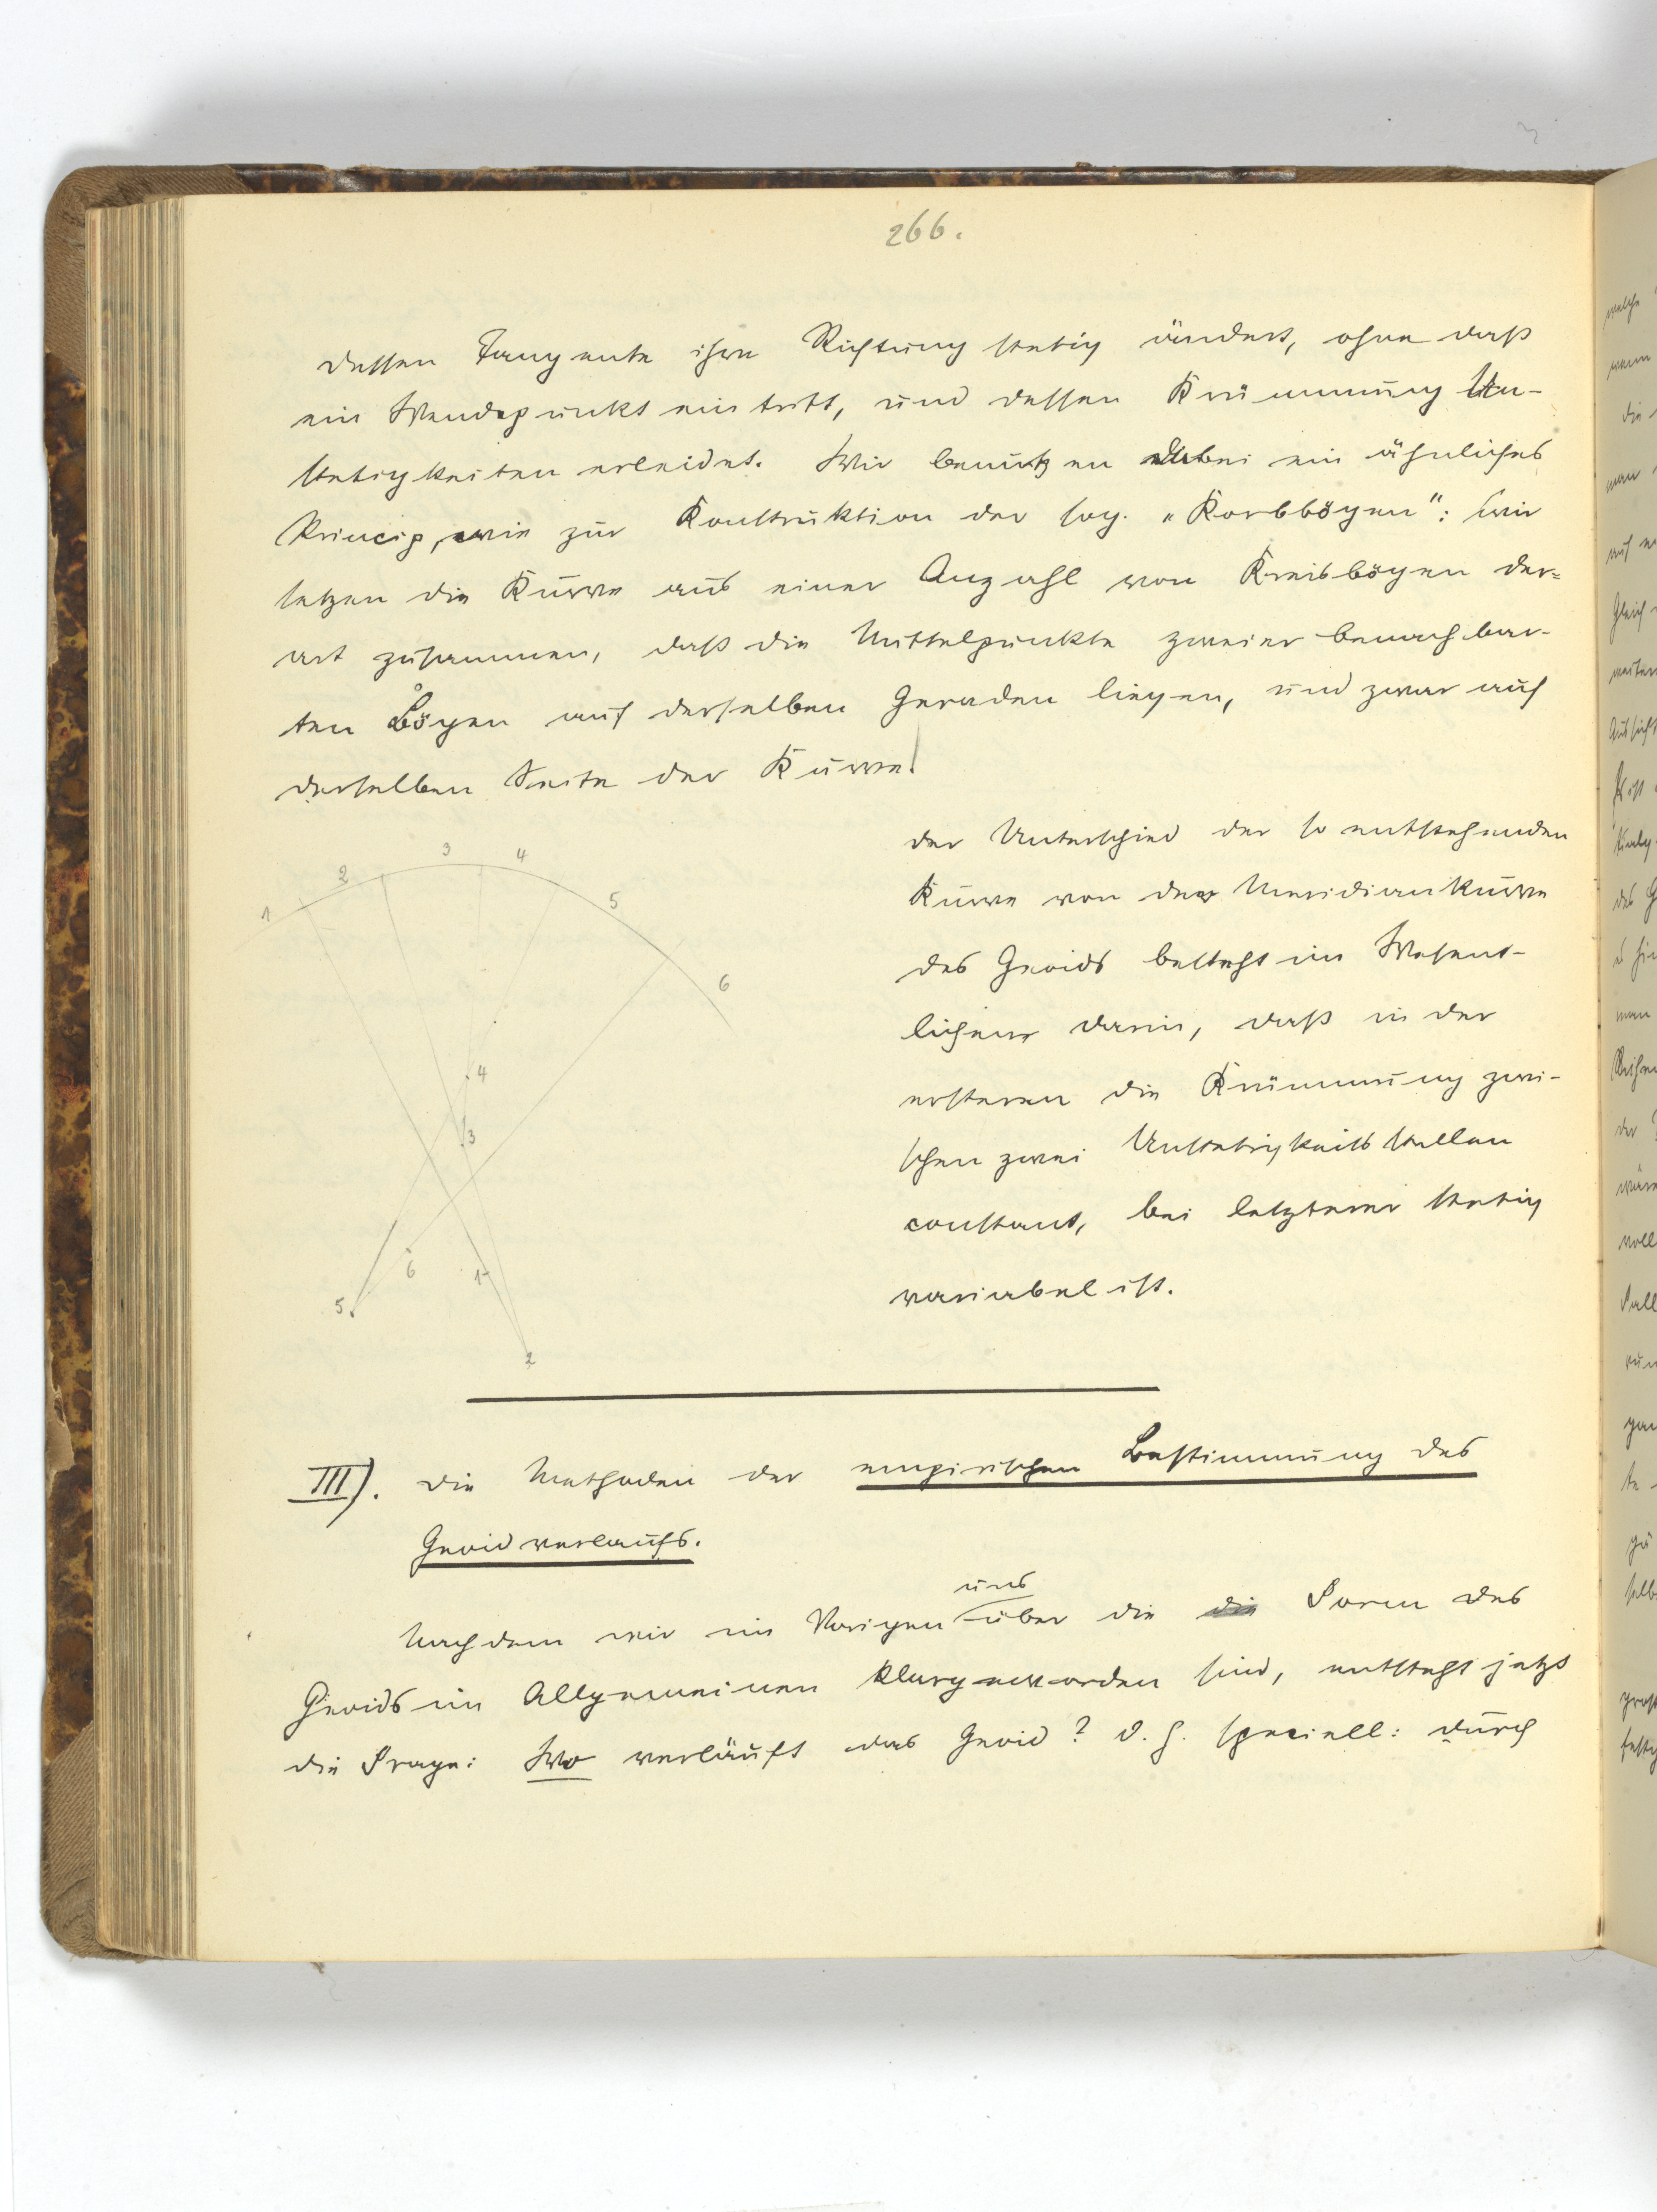 266.
dessen Tangente ihre Richtung stetig ändert, ohne daß
ein Wendepunkt eintritt, und dessen Krümmung Un-
stetigkeiten erleidet. Wir benutzen dabei ein ähnliches
Princip, wie zur Konstruktion der sog. „Korbbögen": wir
setzen die Kurve aus einer Anzahl von Kreisbögen der=
art zusammen, daß die Mittelpunkte zweier benachbar-
ten Bögen auf derselben Geraden liegen, und zwar auf
derselben Seite der Kurve.
1 2 3 4 5 6
4
3
6 1
5.
2
der Unterschied der so entstehenden
Kurve von der Meridiankurve
des Geoids besteht im Wesent-
lichen darin, daß in der
ersteren die Krümmung zwi-
schen zwei Unstetigkeitsstellen
constant, bei letzterer stetig
variabel ist.
III). Die Methoden der empirischen Bestimmung des
Geoidverlaufs.
Nachdem wir im Vorigen uns über die die Form des
Geoids im Allgemeinen klar geworden sind, entsteht jetzt
die Frage: Wo verläuft das Geoid? d. h. speciell: durch